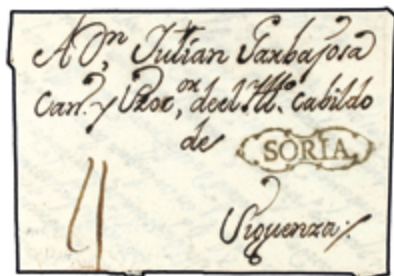 A Dn, Julian Garbajosa
Can. y Pror, del Ill. cabildo
de
SORIA
Siguenza